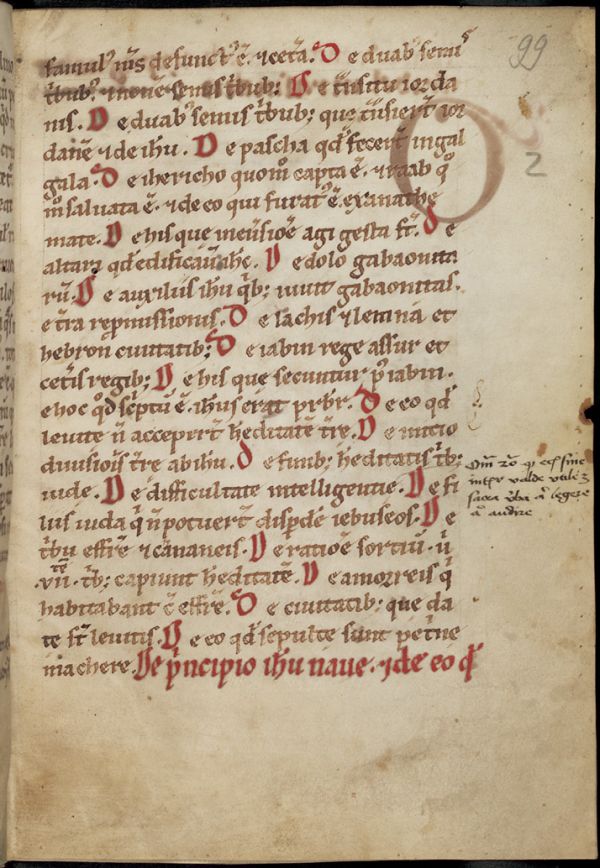 99
famul᷒ m̅s defunct᷒ ē. ⁊ cet̅a. De duab᷒ semi᷒
t̅bub᷒. ⁊ none̅ semis t̅bub; De t̅nsitu iorda
nis. De duab᷒ semis t̅bub; que t̅nsier̅t ior
dane̅ ⁊ de ihu̅. De pascha qd̅ fecer̅t in gal
gala. De ihericho quom̊ capta ē. ⁊ raab q̊
m̊ saluata ē. ⁊ de eo qui furat᷒ ē. ex anathe
mate. De his que in eu̅sio̅e agi gesta st̅. De
altari qd̅ edificau̅ ihc̅. De dolo gabaonita
ru̅. De auxiliis ihu̅ qb̅; iuuit gabaonitas.
e t̅ra repmissionis. De lachis ⁊ lemna et
hebron ciuitatib; De iabin rege assur et
cet̅is regib; De his que secuntur p̅ iabin.
e hoc qd̅ sc̅ptu̅ ē. ihus erat p̅br̅. De eo qd̅
leuite n̅ acceper̅t he̅ditate̅ t̅re. De initio
diuisiois̅ t̅re abihu̅. De funib; he̅ditatis t̅b;
iude. De difficultate intelligentie. De fi
liis iuda q̅ n̅ potuer̅t disp̅de̅ iebuseos. De
t̅bu effre̅ ⁊ cananeis. De ratio̅e sortiu̅. u̅
.vii. t̅b; capiunt he̅ditate̅. De amorreis q̅
habitabant c̅ effre̅. De ciuitatib; que da
te st̅ leuitis. De eo qd̅ sepulte sunt pet̅ne
machere. De p̅ncipio ihu̅ naue. ⁊ de eo q̅
O
2
valde
legere
audire